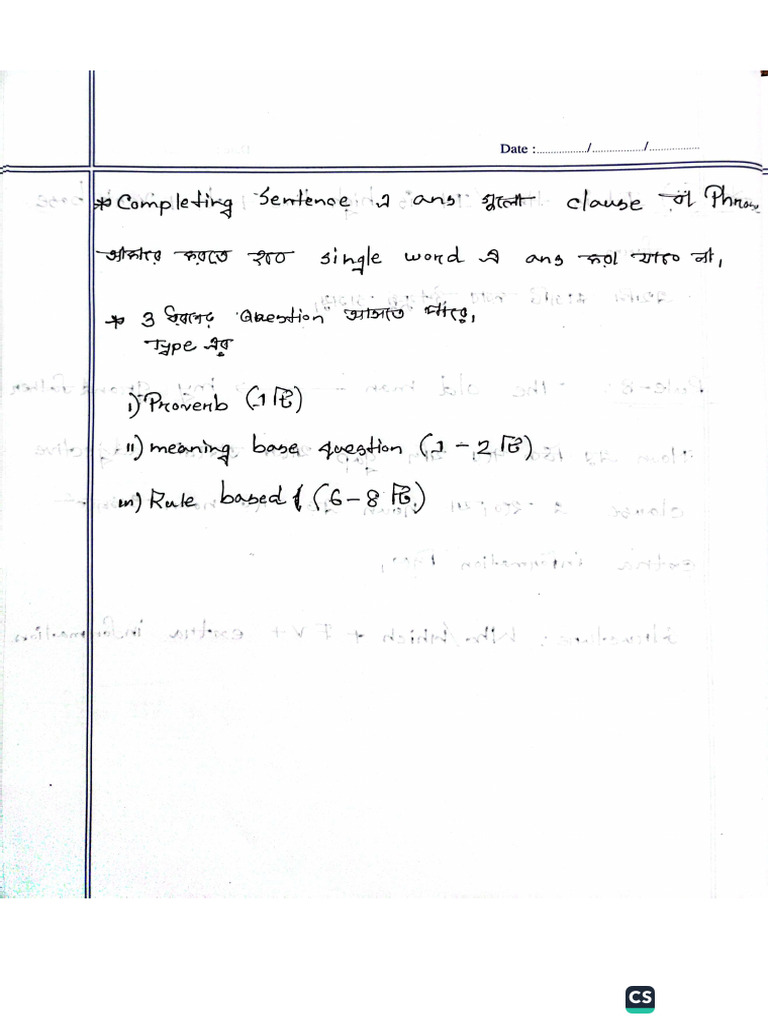 Date : ............../............../..............
* Completing Sentence এ ans গুলো clause বা Phrase
আকারে করতে হবে single word এ ans করা যাবে না,
* 3 ধরনের Question আসতে পারে,
Type এর
i) Proverb (1টি)
ii) meaning base question (1 – 2 টি)
iii) Rule based (6 – 8 টি)
CS